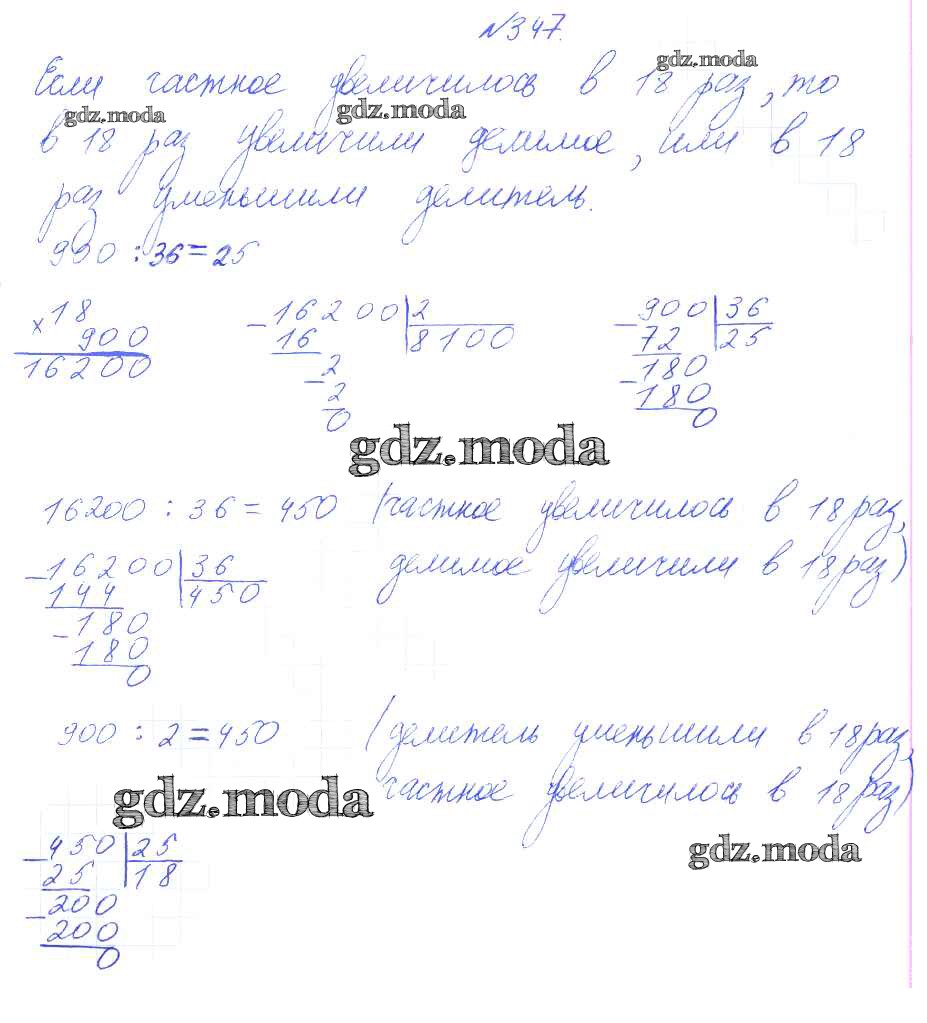 №347.
gdz.moda
Если частное увеличилось в 18 раз, то
gdz.moda gdz.moda
в 18 раз увеличили делимое, или в 18
раз уменьшили делитель.
900 : 36 = 25
× 18
900
16200
- 16200 | 2
16 | 8100
- 2
2
0
- 900 | 36
72 | 25
- 180
180
0
gdz.moda
16200 : 36 = 450 (частное увеличилось в 18 раз,
делимое увеличили в 18 раз)
- 16200 | 36
144 | 450
- 180
180
0
900 : 2 = 450 (делитель уменьшили в 18 раз,
частное увеличилось в 18 раз)
gdz.moda
gdz.moda
- 450 | 25
25 | 18
- 200
200
0